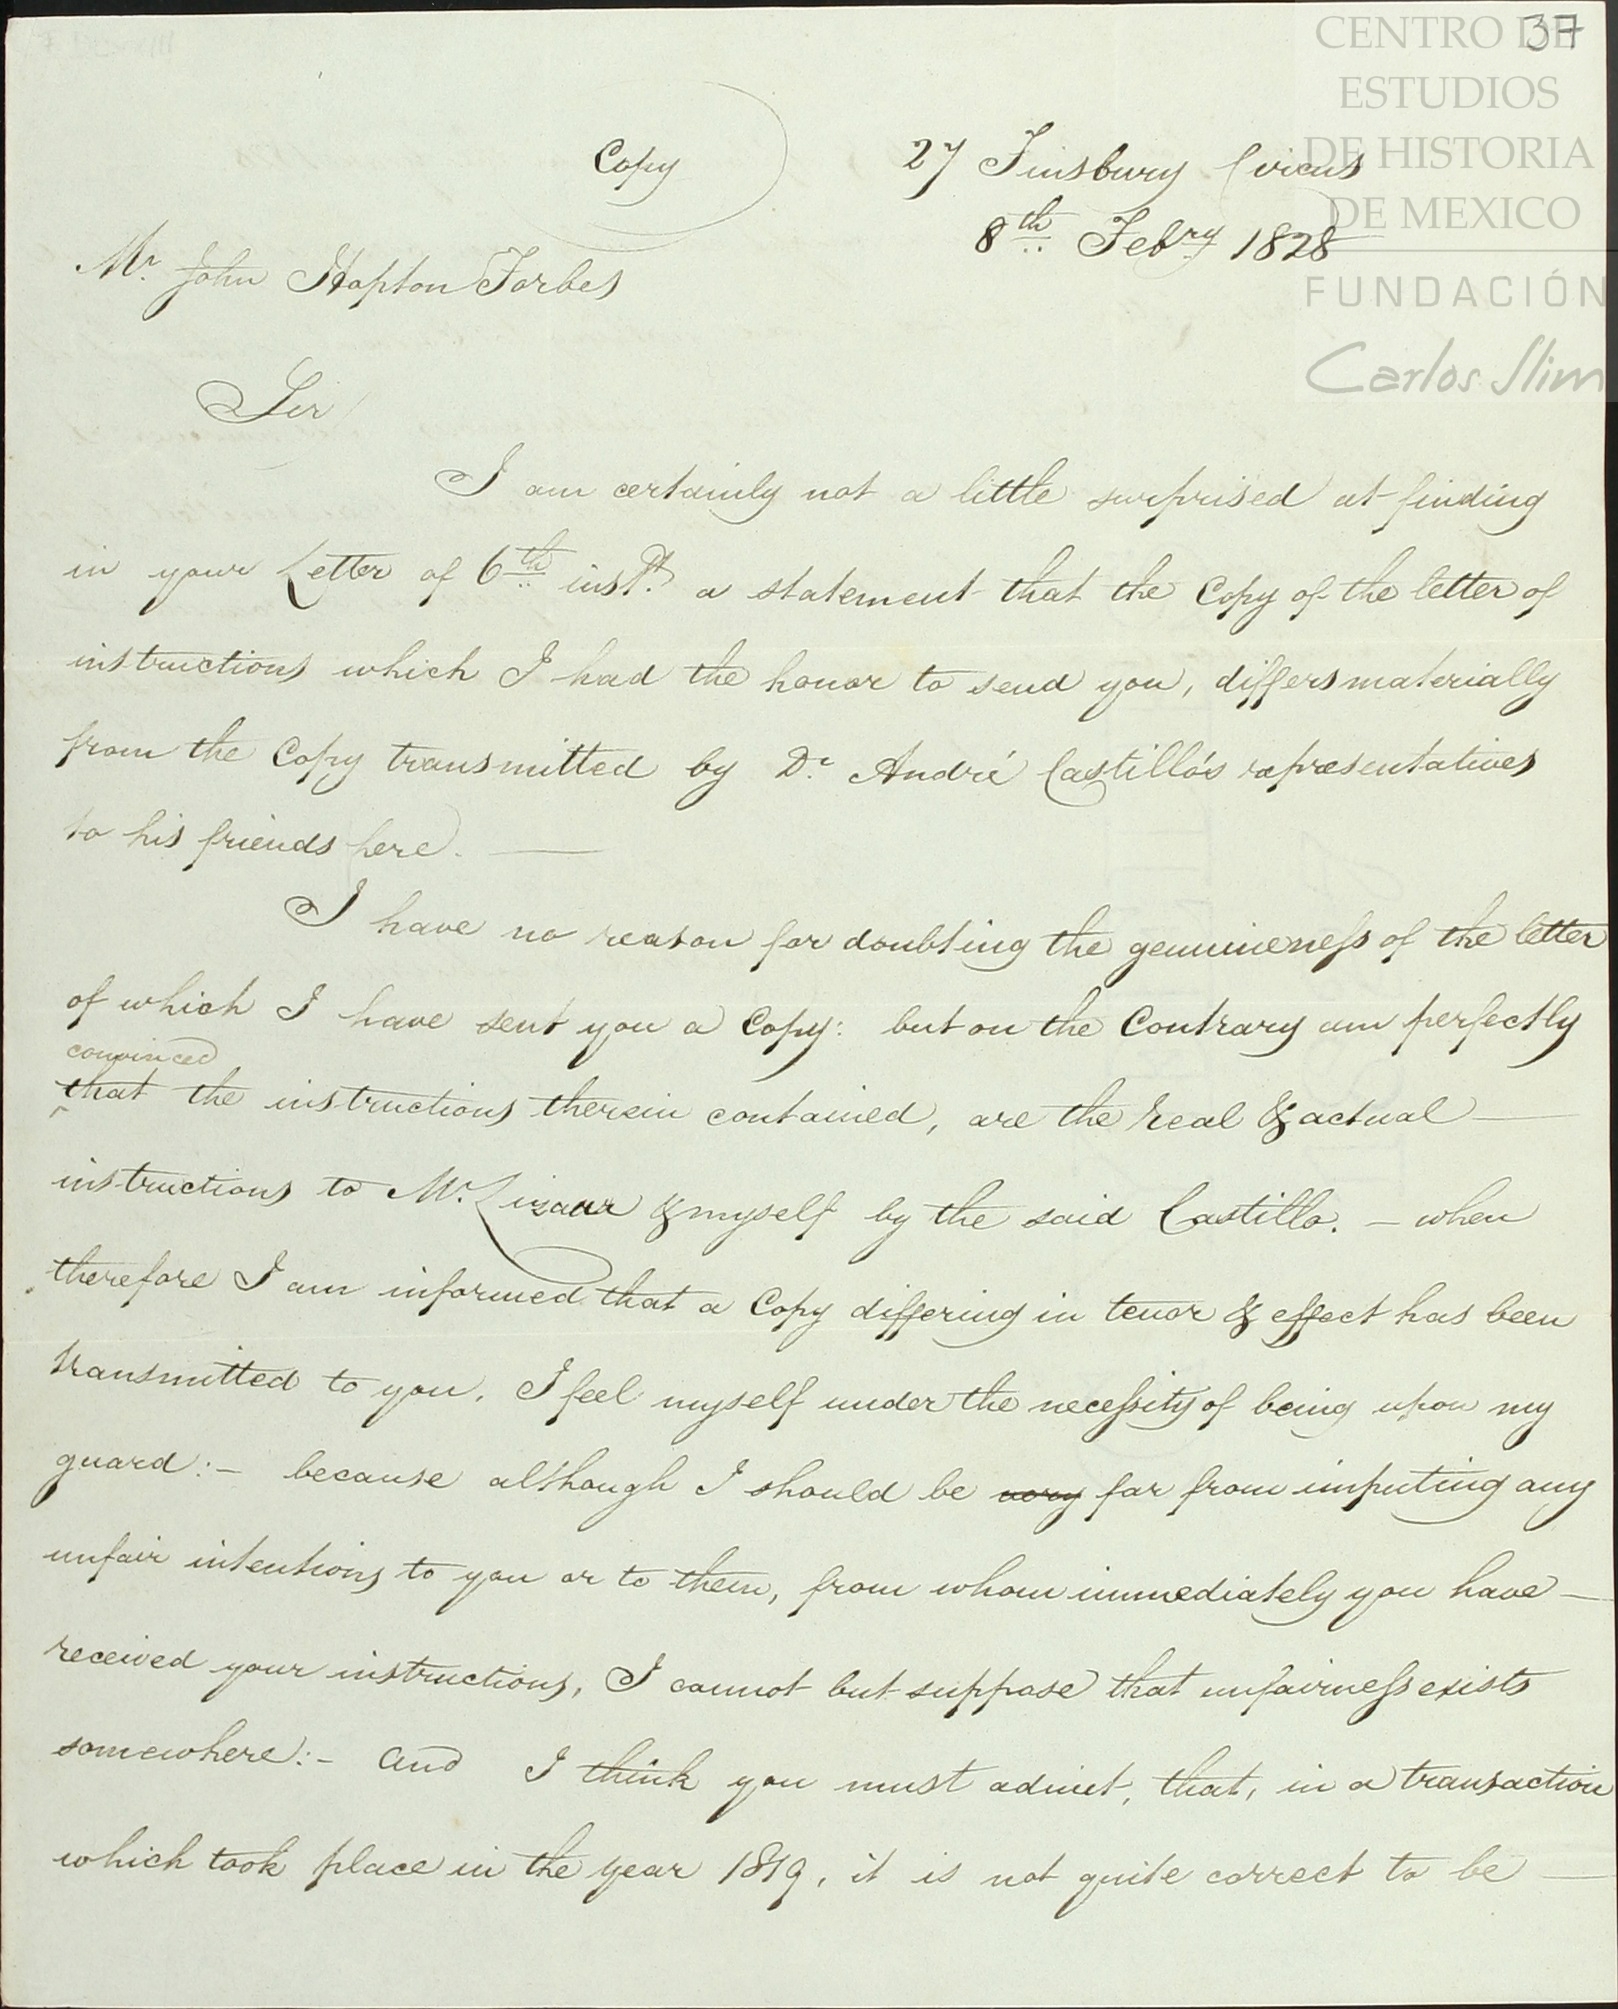 37
CENTRO DE
ESTUDIOS
DE HISTORIA
DE MEXICO
FUNDACIÓN
Carlos Slim
Copy
27 Finsbury Circus
8th Febry 1828
Mr John Hopton Forbes
Sir
I am certainly not a little surprised at finding
in your Letter of 6th inst. a statement that the Copy of the letter of
instructions which I had the honor to send you, differs materially
from the Copy transmitted by Dr André Castillo's representatives
to his friends here. —
I have no reason for doubting the genuineness of the letter
of which I have sent you a Copy: but on the Contrary am perfectly
convinced
that the instructions therein contained, are the real & actual —
instructions to Mr. Lizaur & myself by the said Castillo. – when
therefore I am informed that a Copy differing in tenor & effect has been
transmitted to you. I feel myself under the necessity of being upon my
guard:– because although I should be very far from imputing any
unfair intentions to you or to them, from whom immediately you have —
received your instructions, I cannot but suppose that unfairness exists
somewhere:– and I think you must admit, that, in a transaction
which took place in the year 1819, it is not quite correct to be —